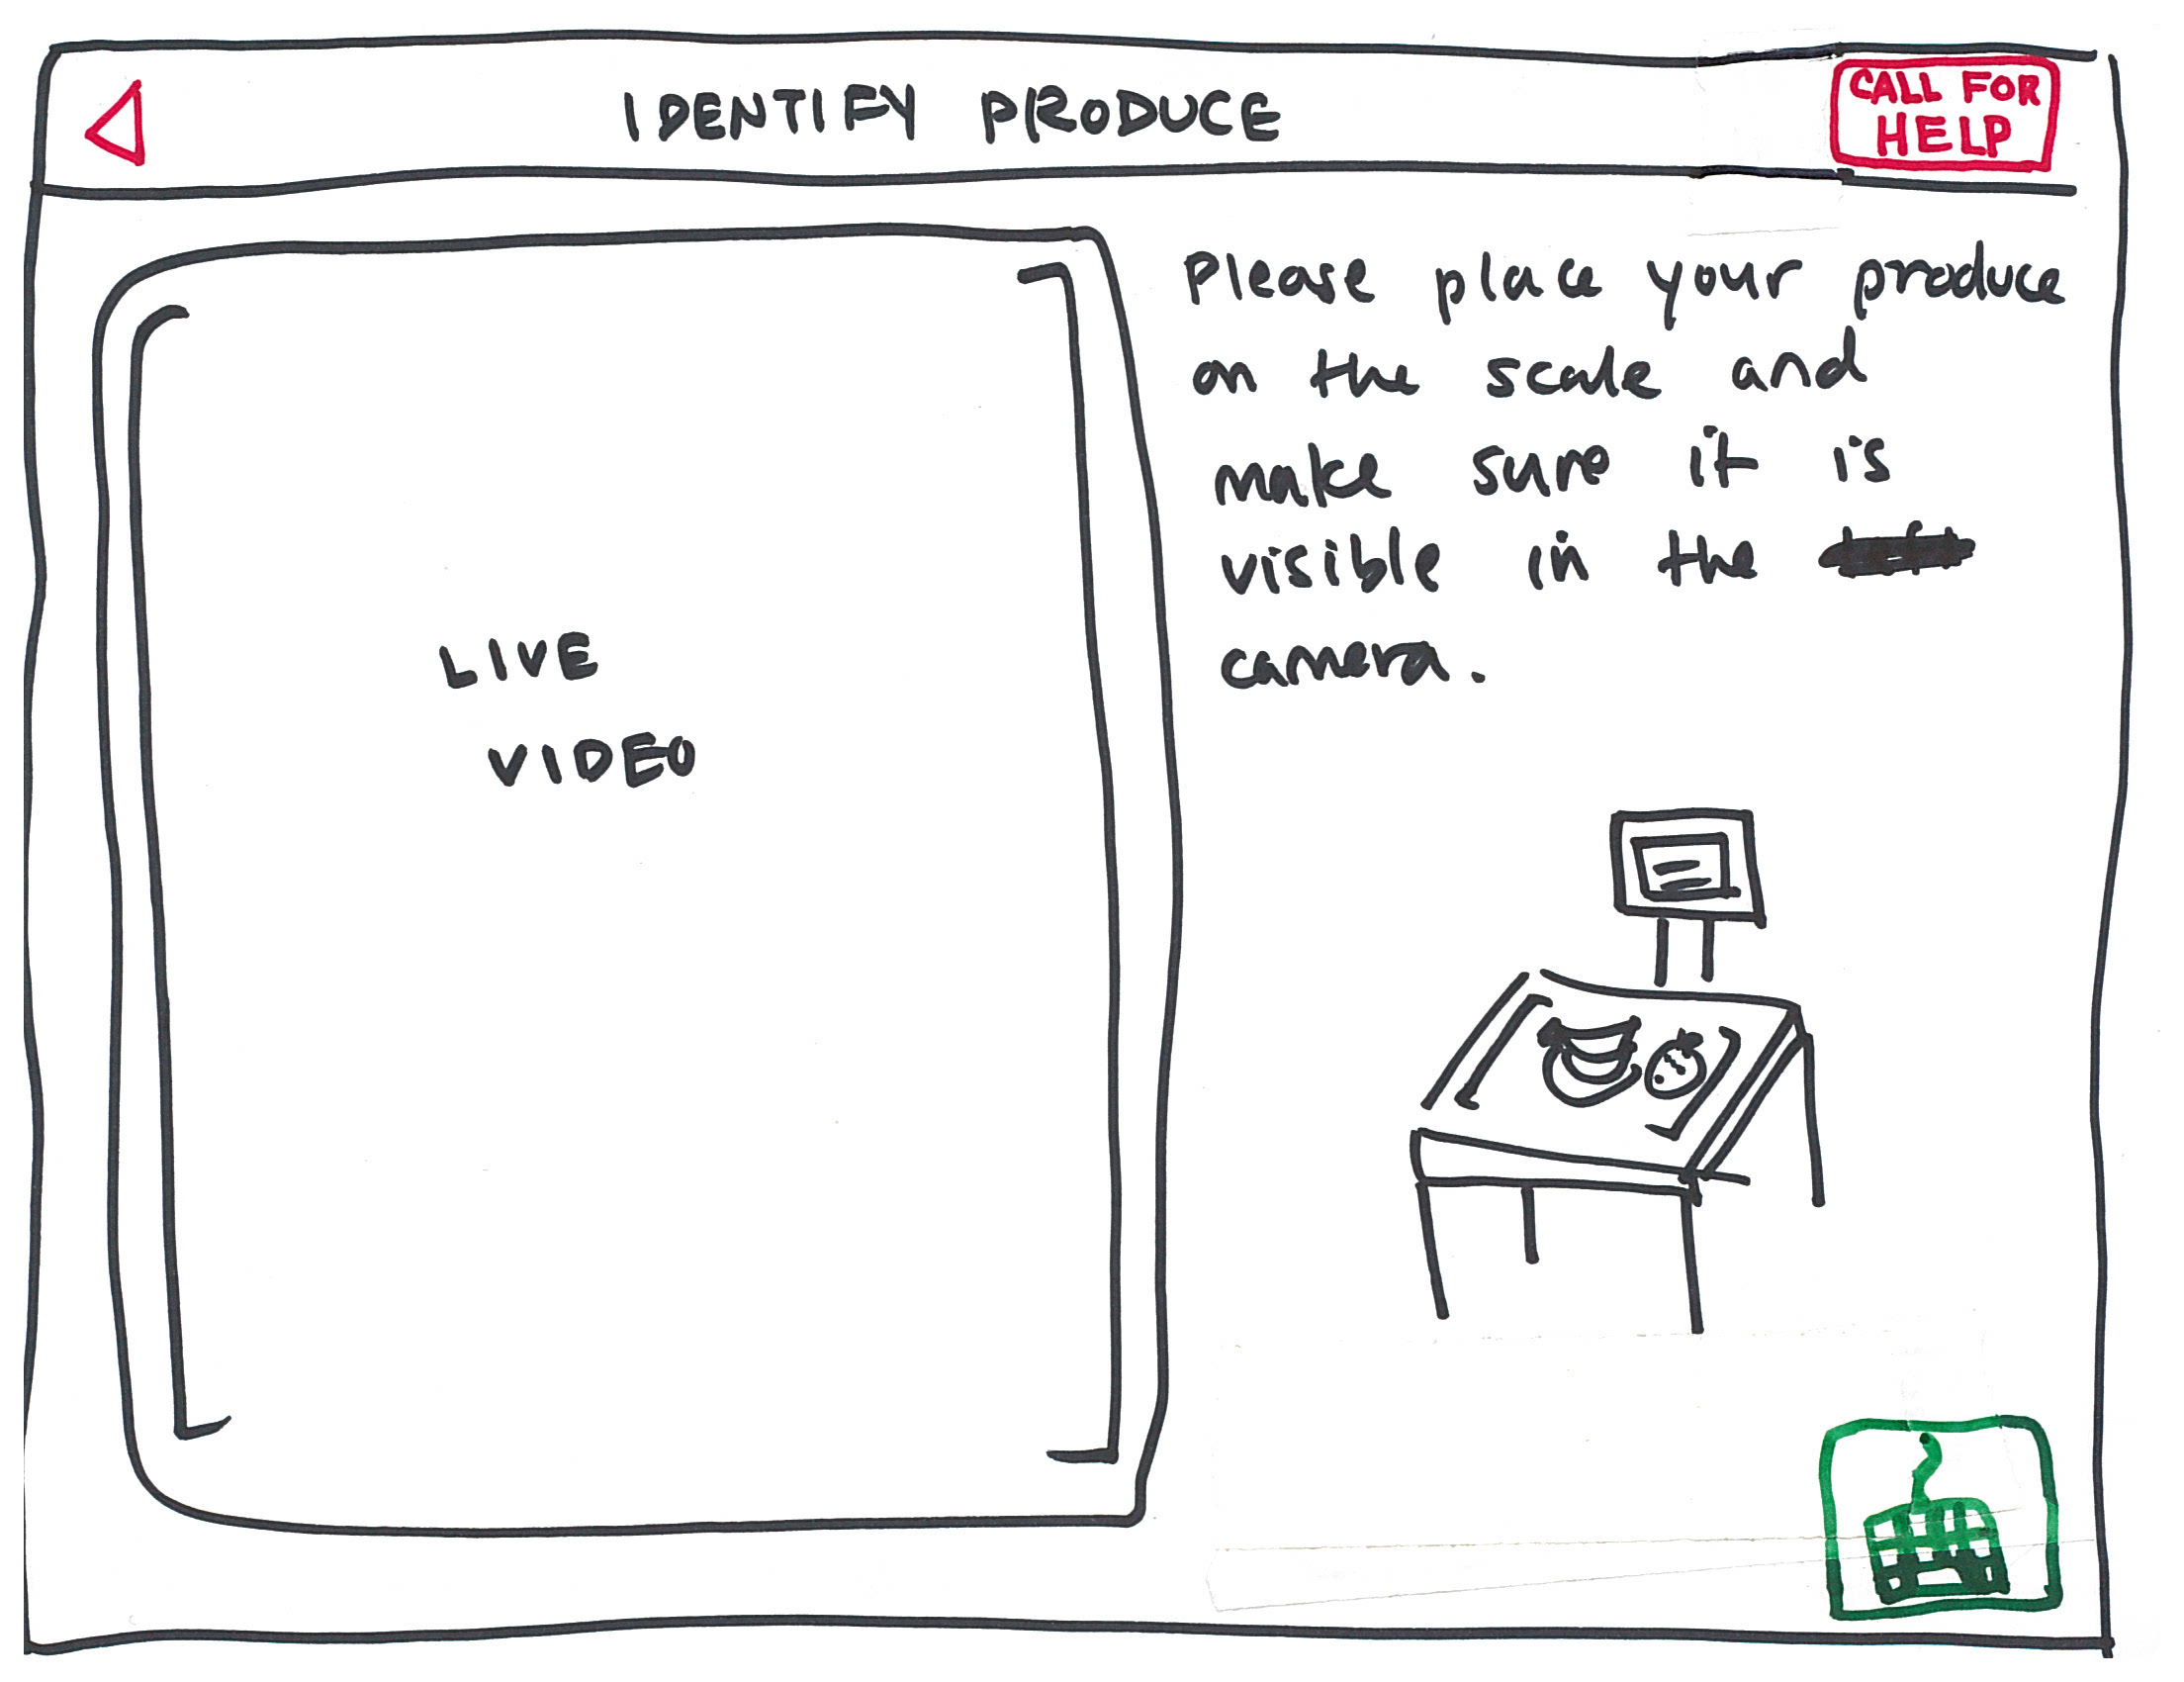 IDENTIFY PRODUCE
CALL FOR
HELP
Please place your produce
on the scale and
make sure it is
visible in the
camera.
LIVE
VIDEO